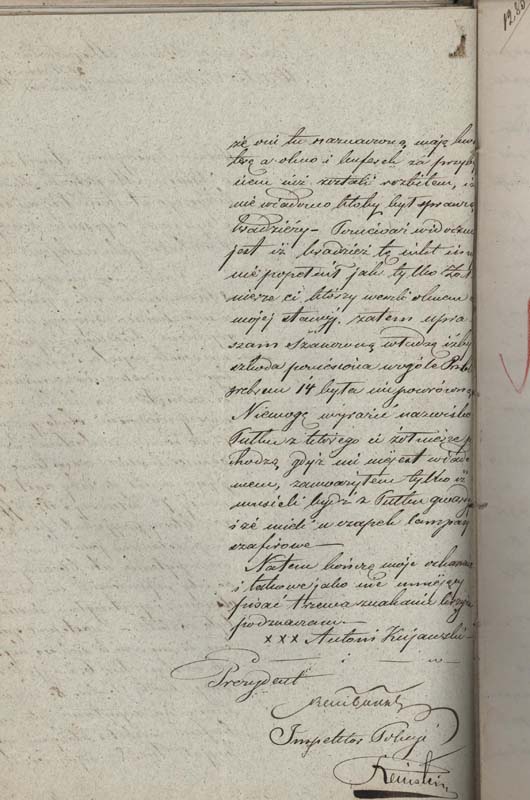 12.80
że oni tu naznaczoną mają kwa
terę a okno i kufereh za przyby
ciem już zostali rozbitem, i
nie wiadomo ktoby był sprawcą
kradzieży – Ponieważ widoczne
jest iż kradzież tę nikt inny
nie popełnił jak tylko Żoł
nierze ci którzy weszli oknem
mojej stancyj, zatem upra
szam szanowną władzę iżby
szkoda poniesiona wogóle Rubli
srebrem 14 była mi powrócona
Niemogę wyrazić nazwisko
Pułku z którego ci żołnierze po
chodzą gdyż mi niejest wiado
mem, zauważyłem tylko iż
musieli bydź z Pułku gwardyi
i że mieli u czapek lampasy
szafirowe –
Na tem kończę moje zeznanie
i takowe jako nie umiejący
pisać trzema znakami krzyża
podznaczam –
××× Antoni Kujawski –
Prezydent
Inspektor Policyi